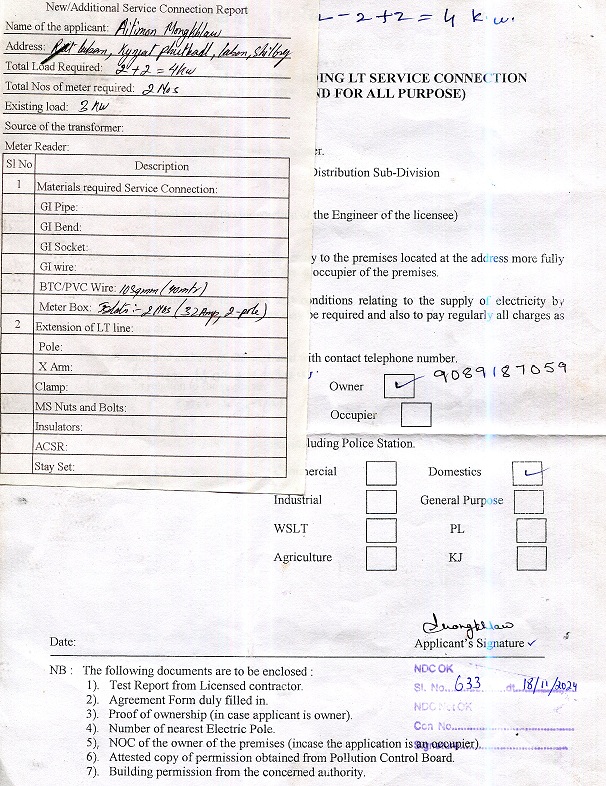 New/Additional Service Connection Report
Name of the applicant: Ailinon Mongkhlaw
Address: Laban, Kynjat phuthadl, Laban, Shillong
Total Load Required: 2+2 = 4kw
Total Nos of meter required: 2 Nos
Existing load: 3 kw
Source of the transformer:
Meter Reader:
Sl No Description
1 Materials required Service Connection:
GI Pipe:
GI Bend:
GI Socket:
GI wire:
BTC/PVC Wire: 10sqmm (40mtr)
Meter Box: :- 2 Nos (32Amp, 2-pole)
2 Extension of LT line:
Pole:
X Arm:
Clamp:
MS Nuts and Bolts:
Insulators:
ACSR:
Stay Set:
2+2 = 4 k.w.
DING LT SERVICE CONNECTION
ND FOR ALL PURPOSE)
er.
Distribution Sub-Division
the Engineer of the licensee)
y to the premises located at the address more fully
occupier of the premises.
onditions relating to the supply of electricity by
be required and also to pay regularly all charges as
ith contact telephone number.
Owner ✓ 9089187059
Occupier
luding Police Station.
nercial Domestics ✓
Industrial General Purpose
WSLT PL
Agriculture KJ
Date: Applicant's Signature ✓
NB : The following documents are to be enclosed :
1). Test Report from Licensed contractor.
2). Agreement Form duly filled in.
3). Proof of ownership (in case applicant is owner).
4). Number of nearest Electric Pole.
5), NOC of the owner of the premises (incase the application is an occupier).
6). Attested copy of permission obtained from Pollution Control Board.
7). Building permission from the concerned authority.
NDC OK
Sl. No. 633 dt. 18/11/2024
Con No.